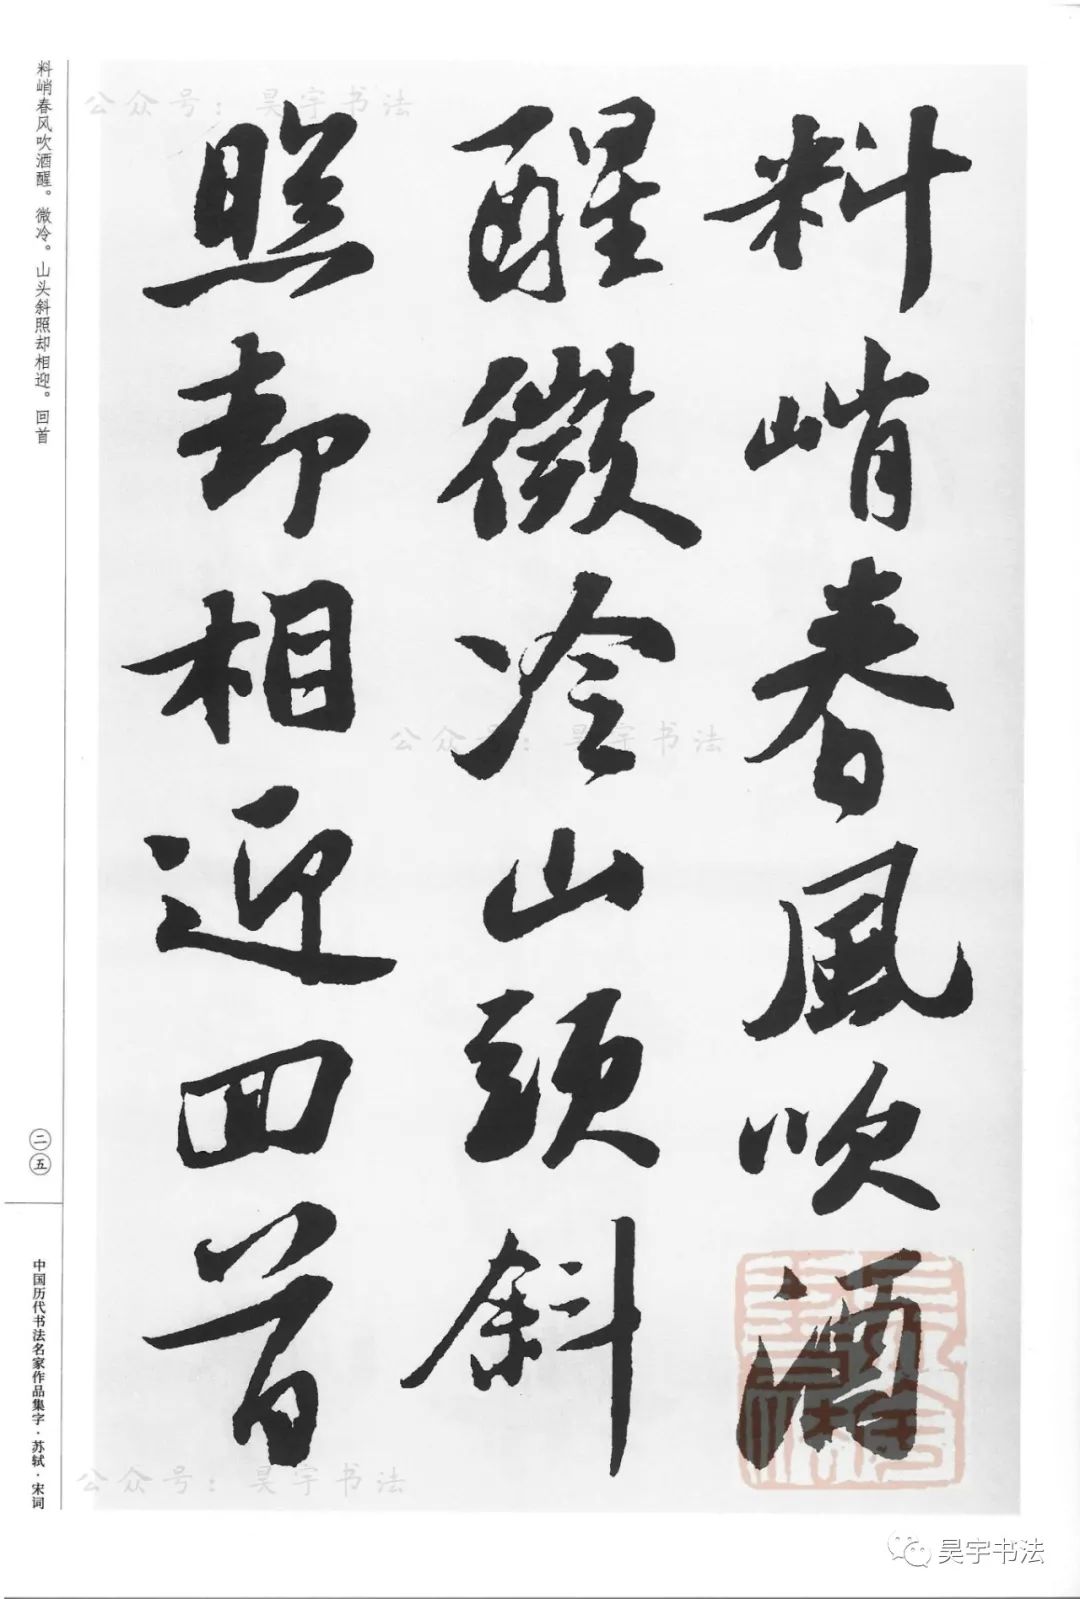 料峭春風吹酒
醒微冷山頭斜
照却相迎回首
料峭春风吹酒醒。微冷。山头斜照却相迎。回首
二五
中国历代书法名家作品集字·苏轼·宋词
公众号：昊宇书法
公众号：昊宇书法
公众号：昊宇书法
昊宇书法